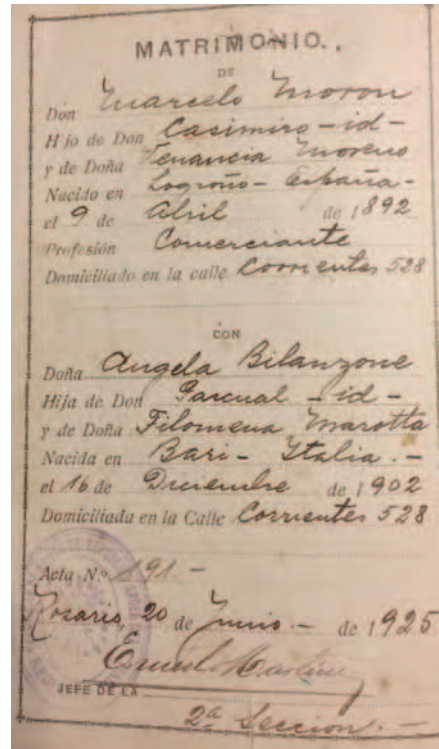 MATRIMONIO.
DE
Don Marcelo Moron
Hijo de Don Casimiro - id -
y de Doña Venancia Moreno
Nacido en Logroño - España -
el 9 de Abril de 1892
Profesión Comerciante
Domiciliado en la calle Corrientes 528
CON
Doña Angela Bilanzone
Hija de Don Pascual - id -
y de Doña Filomena Marotta
Nacida en Bari - Italia. -
el 16 de Diciembre de 1902
Domiciliada en la Calle Corrientes 528
Acta N.º 191. -
Rosario, 20 de Junio. - de 1925
JEFE DE LA
2ª Seccion. -